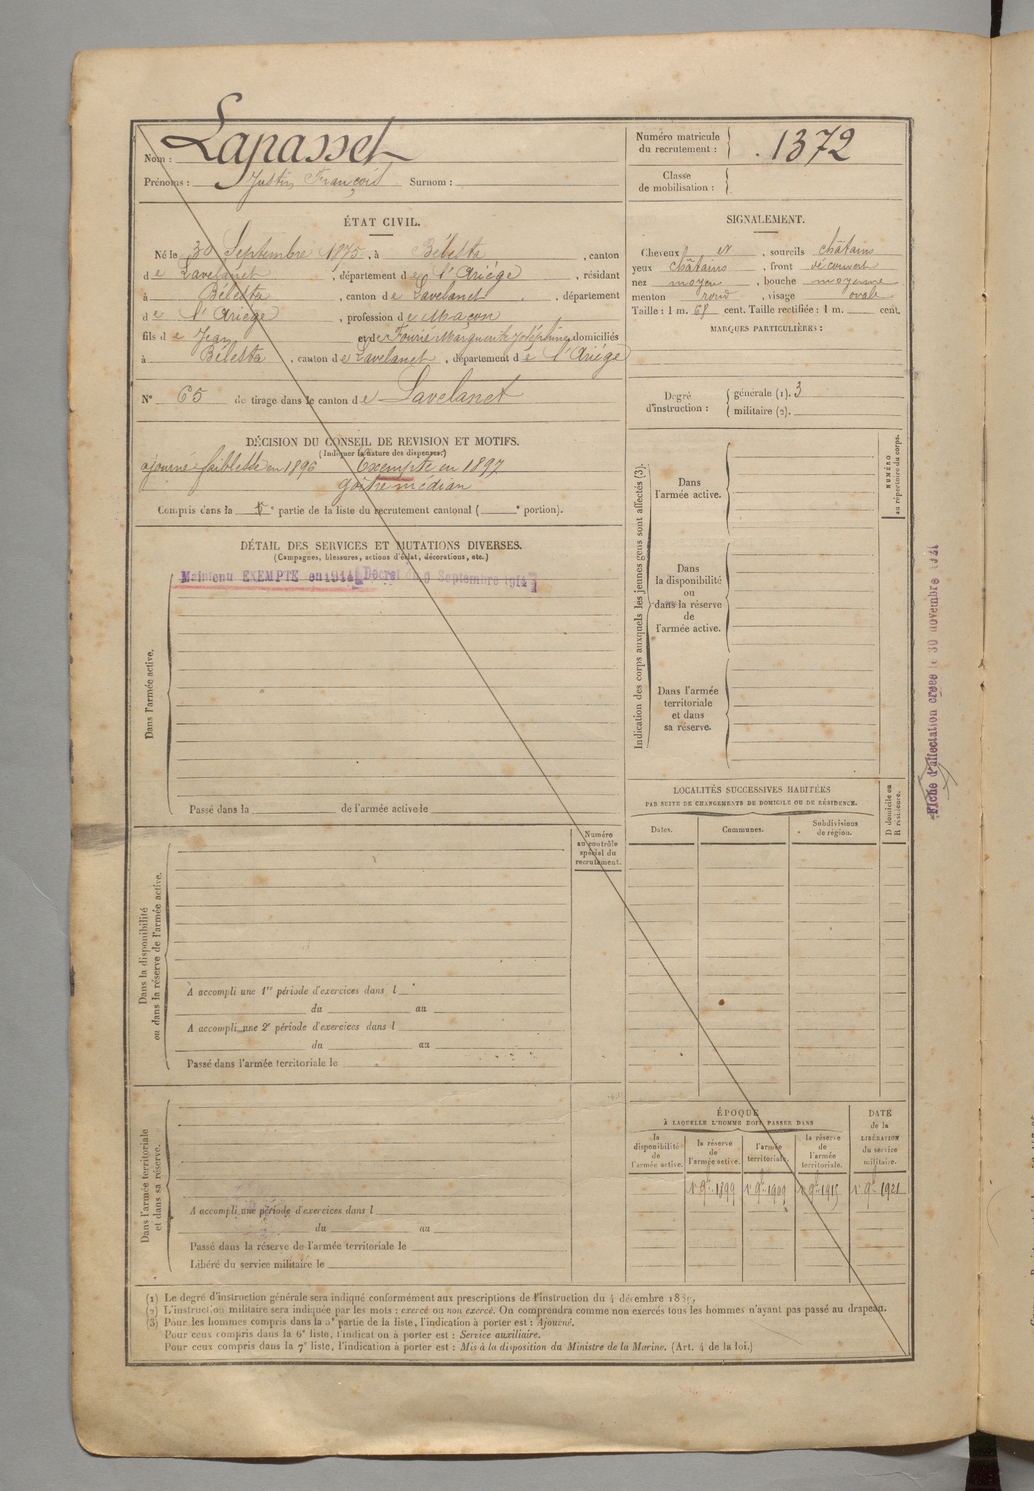 Nom : Lapasset
Prénoms : Justin François Surnom :
Numéro matricule du recrutement : 1372
Classe de mobilisation :
ÉTAT CIVIL.
Né le 30 Septembre 1875, à Bélesta, canton
de Lavelanet, département de l'Ariége, résidant
à Bélesta, canton de Lavelanet, département
de l'Ariége, profession de Maçon
fils de Jean et de Fourié Marguerite Joséphine, domiciliés
à Bélesta, canton de Lavelanet, département de l'Ariége
N° 65 de tirage dans le canton de Lavelanet
SIGNALEMENT.
Cheveux et, sourcils châtains
yeux châtains, front découvert
nez moyen, bouche moyenne
menton rond, visage ovale
Taille : 1 m. 68 cent. Taille rectifiée : 1 m. cent.
MARQUES PARTICULIÈRES :
Degré d'instruction : générale (1). 3
militaire (2).
DÉCISION DU CONSEIL DE REVISION ET MOTIFS.
(Indiquer la nature des dispenses.)
ajourné faiblesse en 1896 Exempté en 1897
goitre médian
Compris dans la partie de la liste du recrutement cantonal ( ° portion).
DÉTAIL DES SERVICES ET MUTATIONS DIVERSES.
(Campagnes, blessures, actions d'éclat, décorations, etc.)
Maintenu EXEMPTE en 1914 Décret du 9 Septembre 1914
Dans l'armée active.
Passé dans la de l'armée active le
Indication des corps auxquels les jeunes gens sont affectés (3).
Dans l'armée active.
Dans la disponibilité ou dans la réserve de l'armée active.
Dans l'armée territoriale et dans sa réserve.
NUMÉRO au répertoire du corps.
Fiche d'affectation créée le 30 novembre 1921
LOCALITÉS SUCCESSIVES HABITÉES
PAR SUITE DE CHANGEMENTS DE DOMICILE OU DE RÉSIDENCE.
Dates. Communes. Subdivisions de région.
D domicile ou R résidence.
Numéro au contrôle spécial du recrutement.
Dans la disponibilité ou dans la réserve de l'armée active.
A accompli une 1re période d'exercices dans l
du au
A accompli une 2e période d'exercices dans l
du au
Passé dans l'armée territoriale le
Dans l'armée territoriale et dans sa réserve.
A accompli une période d'exercices dans l
du au
Passé dans la réserve de l'armée territoriale le
Libéré du service militaire le
ÉPOQUE
À LAQUELLE L'HOMME DOIT PASSER DANS
la disponibilité de l'armée active.
la réserve de l'armée active.
l'armée territoriale.
la réserve de l'armée territoriale.
DATE de la LIBÉRATION du service militaire.
1er 9bre 1899 1er 9bre 1909 1er 9bre 1915 1er 9bre 1921
(1) Le degré d'instruction générale sera indiqué conformément aux prescriptions de l'instruction du 4 décembre
(2) L'instruction militaire sera indiquée par les mots : exercé ou non exercé. On comprendra comme non exercés tous les hommes n'ayant pas passé au drapeau.
(3) Pour les hommes compris dans la partie de la liste, l'indication à porter est : Ajourné.
Pour ceux compris dans la 6e liste, l'indication à porter est : Service auxiliaire.
Pour ceux compris dans la 7e liste, l'indication à porter est : Mis à la disposition du Ministre de la Marine. (Art. 4 de la loi.)